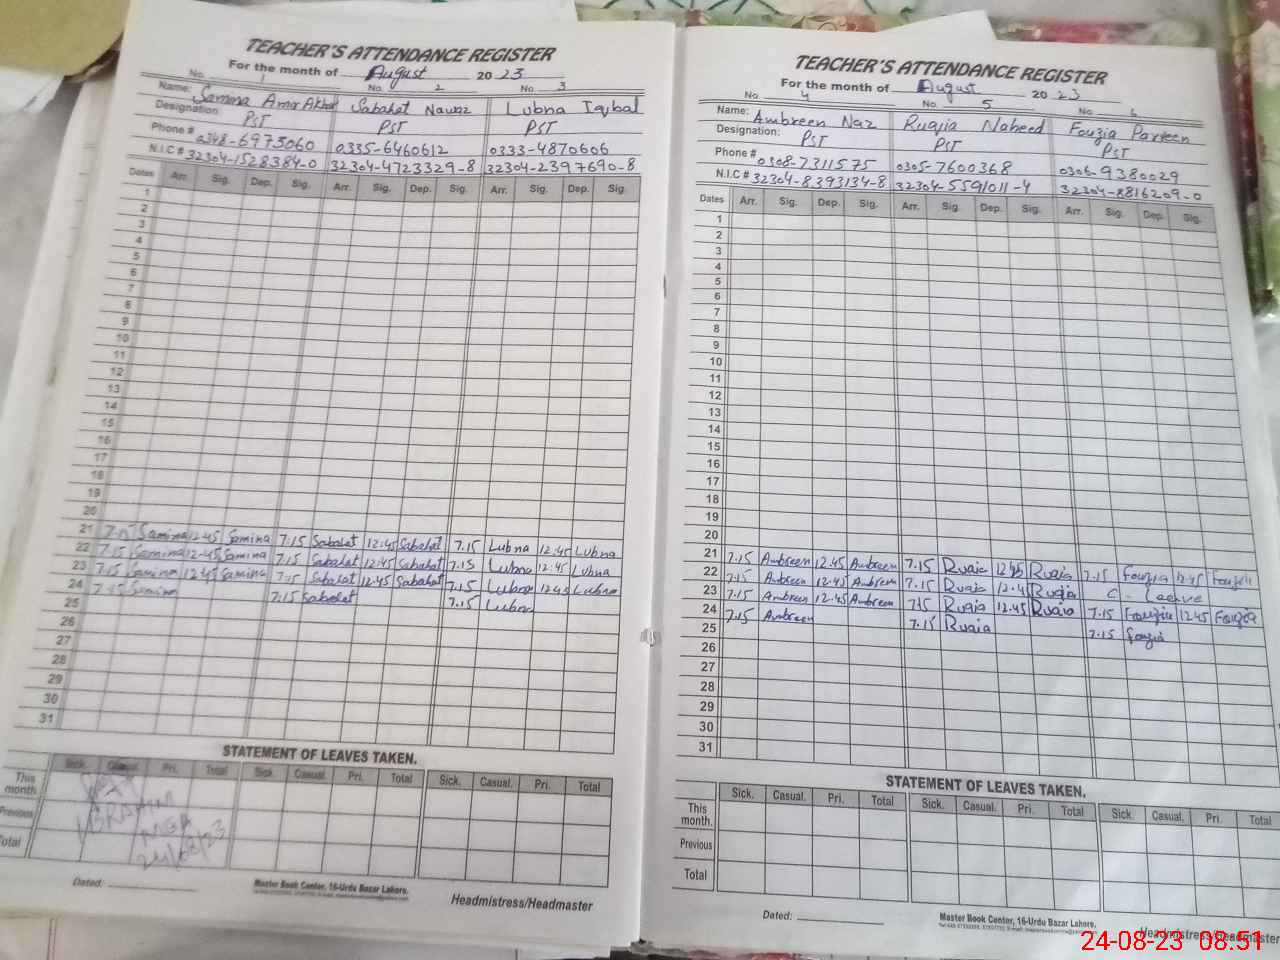 TEACHER'S ATTENDANCE REGISTER
For the month of August 2023
No. 1 No. 2 No. 3
Name: Samina Amir Sabahat Nawaz Lubna Iqbal
Designation: PST PST PST
Phone # 0348-6975060 0335-6460612 0333-4870606
N.I.C # 32304-1528384-0 32304-4723329-8 32304-2397690-8
Dates Arr. Sig. Dep. Sig. Arr. Sig. Dep. Sig. Arr. Sig. Dep. Sig.
1
2
3
4
5
6
7
8
9
10
11
12
13
14
15
16
17
18
19
20
21 7.15 Samina 12.45 Samina 7.15 Sabahat 12:45 Sabahat 7.15 Lubna 12:45 Lubna
22 7.15 Samina 12-45 Samina 7.15 Sabahat 12:45 Sabahat 7.15 Lubna 12:45 Lubna
23 7.15 Samina 12.45 Samina 7.15 Sabahat 12.45 Sabahat 7.15 Lubna 12.45 Lubna
24 7.15 Samina 7.15 Sabahat 7.15 Lubna
25
26
27
28
29
30
31
STATEMENT OF LEAVES TAKEN.
Sick. Casual. Pri. Total Sick. Casual. Pri. Total Sick. Casual. Pri. Total
This month
Previous
Total
IBRAHIM
MEA
24/08/23
Dated:
Master Book Center, 16-Urdu Bazar Lahore.
Headmistress/Headmaster
TEACHER'S ATTENDANCE REGISTER
For the month of August 2023
No. 4 No. 5 No. 6
Name: Ambreen Naz Ruqia Naheed Fouzia Parveen
Designation: PST PST PST
Phone # 0308-7311575 0305-7600368 0306-9380029
N.I.C # 32304-8393134-8 32304-5591011-4 32304-8816209-0
Dates Arr. Sig. Dep. Sig. Arr. Sig. Dep. Sig. Arr. Sig. Dep. Sig.
1
2
3
4
5
6
7
8
9
10
11
12
13
14
15
16
17
18
19
20
21 7.15 Ambreen 12.45 Ambreen 7.15 Ruqia 12.45 Ruqia 7.15 Fouzia 12.45 Fouzia
22 7.15 Ambreen 12.45 Ambreen 7.15 Ruqia 12.4 Ruqia C - Leave
23 7.15 Ambreen 12.45 Ambreen 7.15 Ruqia 12.45 Ruqia 7.15 Fouzia 12.45 Fouzia
24 7.15 Ambreen 7.15 Ruqia 7.15 Fouzia
25
26
27
28
29
30
31
STATEMENT OF LEAVES TAKEN.
Sick. Casual. Pri. Total Sick. Casual. Pri. Total Sick. Casual. Pri. Total
This month.
Previous
Total
Dated:
Master Book Center, 16-Urdu Bazar Lahore.
Headmistress/Headmaster
24-08-23 08:51